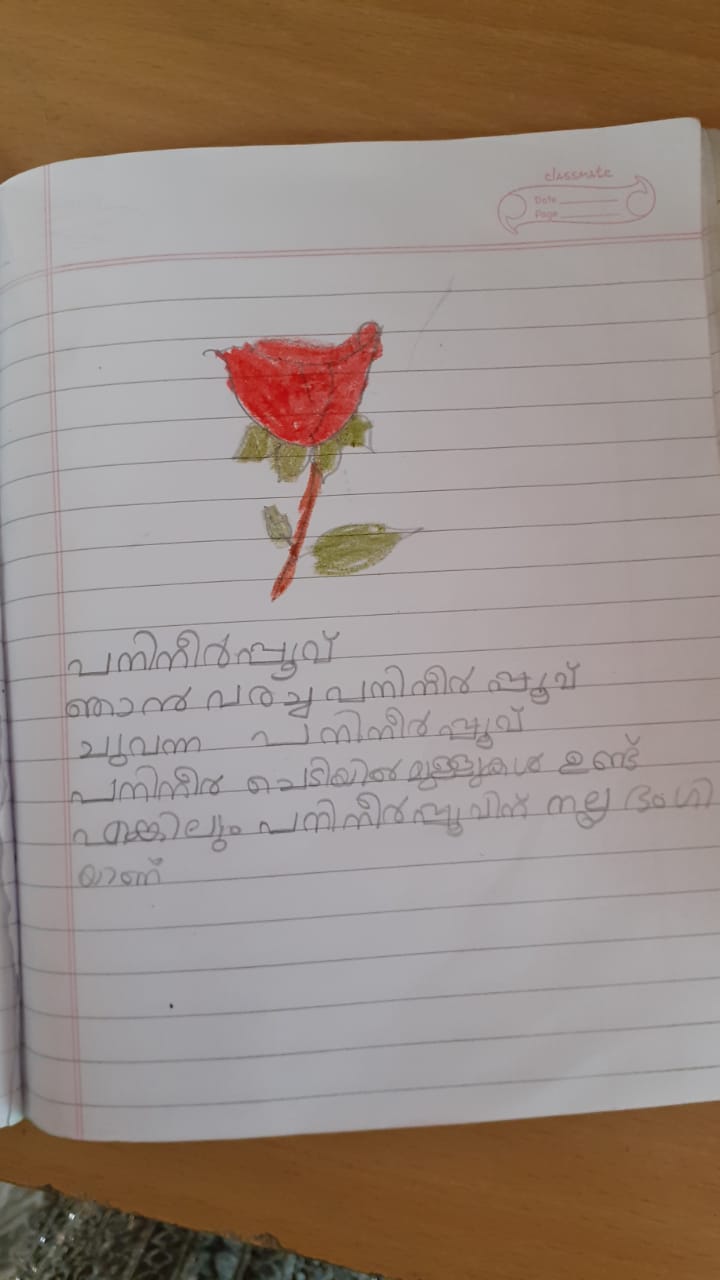 classmate
Date
Page
പനിനീർപ്പൂവ്
ഞാൻ വരച്ച പനിനീർ പ്പൂവ്
ചുവന്ന പനിനീർപ്പൂവ്
പനിനീർ ചെടിയിൽ മുള്ളുകൾ ഉണ്ട്
എങ്കിലും പനിനീർപ്പൂവിന് നല്ല ഭംഗി
യാണ്